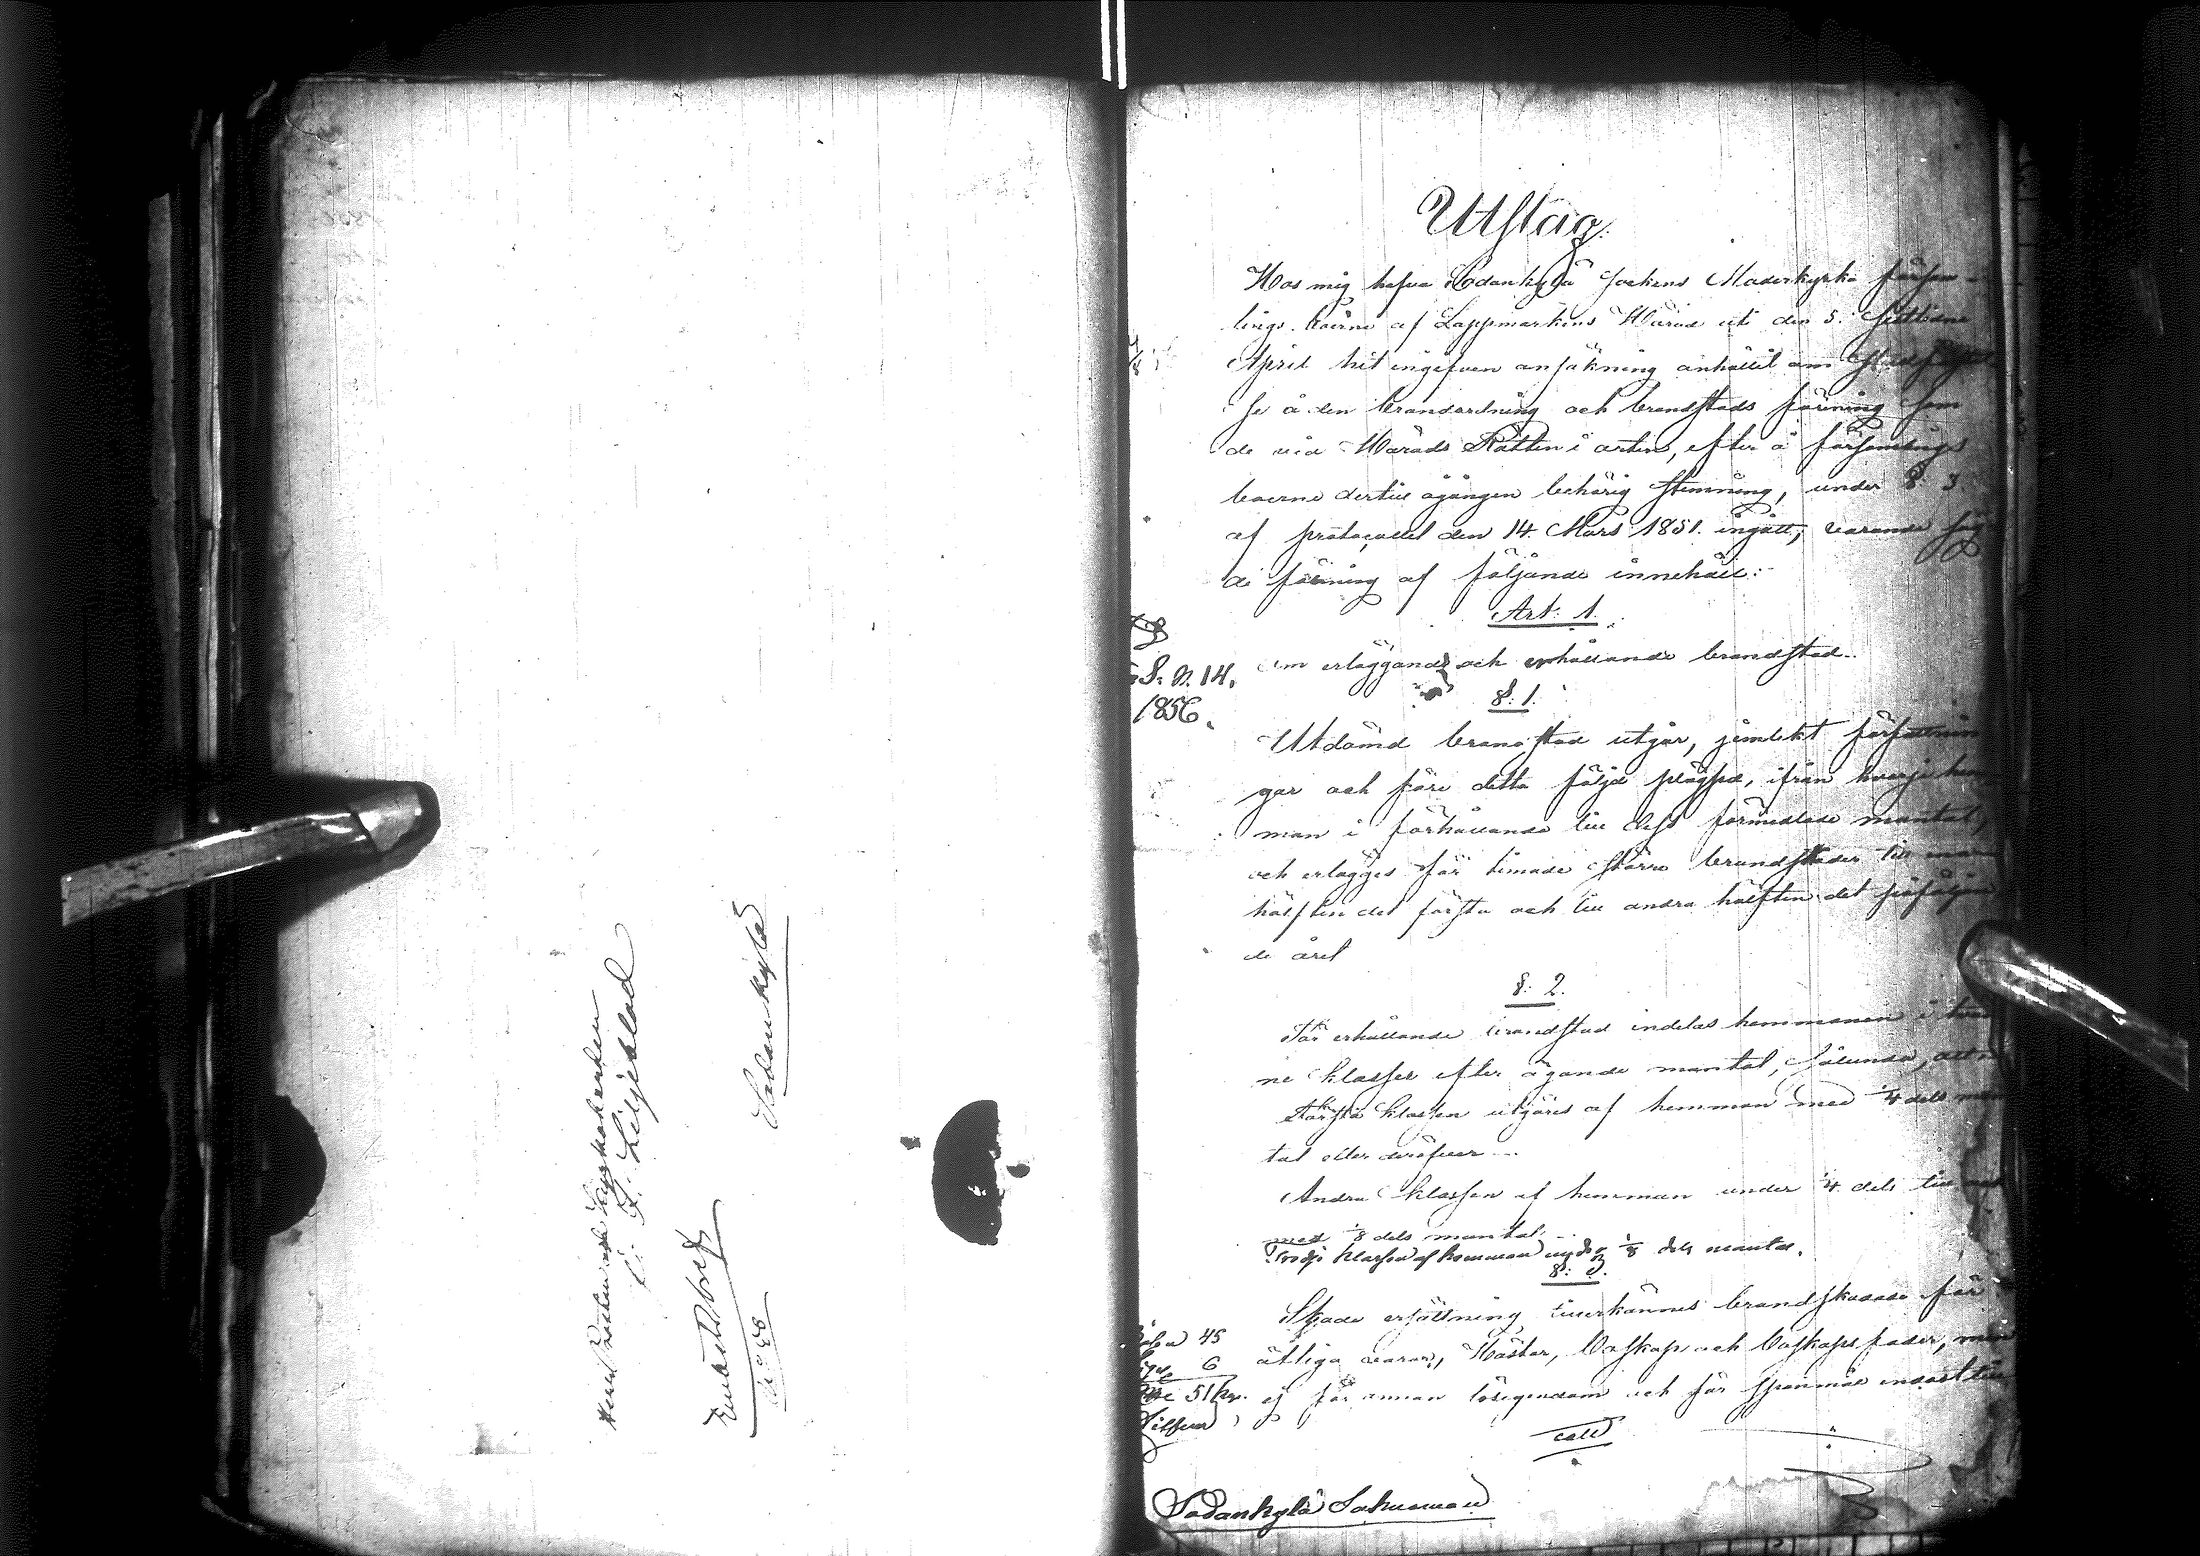 Herr Probsten och Kyrkoherden
C. J. Liljeblad
Embetsbref
Sodankylä
Utslag.
Hos mig hafva Sodankylä Sockens Moderkyrko försam-
lings boerne af Lappmarkens Härad uti den 5. sistlidne
April hit ingifven ansökning anhållit om stadfästel-
se å den brandordning och brandstods förening som
de vid Härads Rätten i orten, efter å församlings
boerne dertill ågången behörig stämning, under § 3
af protocollet den 14. Mars 1851. ingått; varande
de förening af följande innehåll:
Art. 1.
Om erläggande och erhållande brandstod.
§. 1.
N. 14.
1856.
Utdömd brandstod utgår, jemlikt författnin
gar och före detta följd plägsed, ifrån hvarje hem
man i förhållande till dess förmedlade mantal,
och erlägges för timade större brandskador till ena
hälften det första och till andra hälften det påföljan
de året
§. 2.
För erhållande brandstod indelas hemmanen i tre
ne klasser efter ägande mantal, sålunda, att
Första klassen utgöres af hemman med 1/4 dels man
tal eller deröfver
Andra klassen af hemman under 1/4 dels till
med 1/8 dels mantal.
Tredje klassen af hemman under 1/8 dels mantal.
§: 3.
Skade ersättning tillerkännes brandskadade för
ätliga varor, Hästar, Boskap och Boskaps foder, men
ej för annan lösegendom och för spanmål endast till
45
6
51 kop.
Silfver
Sodankylä Sokneman